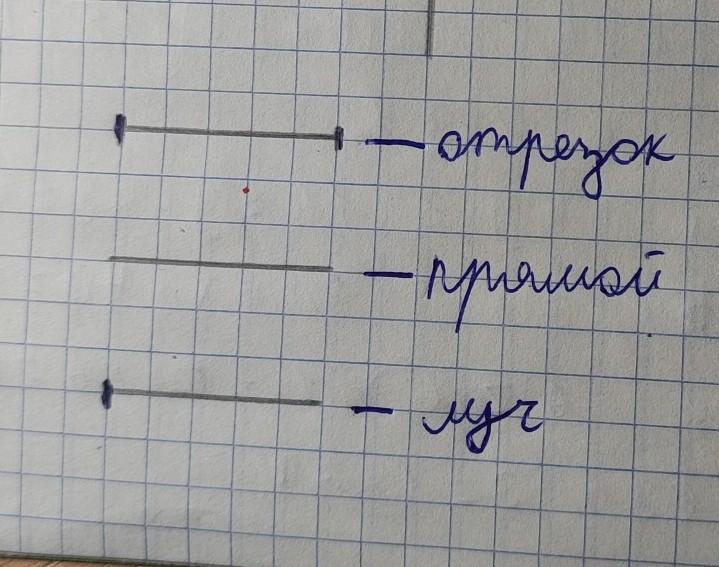 — отрезок
— прямой
— луч